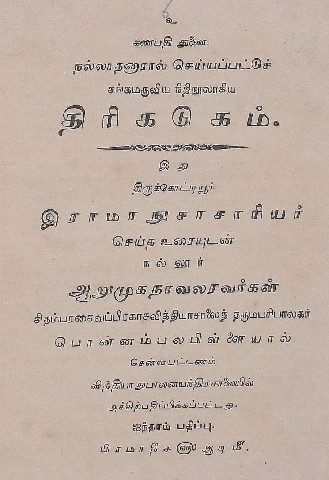 உ
கணபதி துணை.
நல்லாதனாரால் செய்யப்பட்டுச்
சங்கமருவிய நீதிநூலாகிய
திரிகடுகம்.
இது
திருக்கோட்டியூர்
இராமாநுசாசாரியர்
செய்த உரையுடன்
நல்லூர்
ஆறுமுகநாவலரவர்கள்
சிதம்பரசைவப்பிரகாசவித்தியாசாலைத் தருமபரிபாலகர்
பொன்னம்பலபிள்ளையால்
சென்னபட்டணம்
வித்தியாநுபாலனயந்திரசாலையில்
அச்சிற்பதிப்பிக்கப்பட்டது.
ஐந்தாம் பதிப்பு.